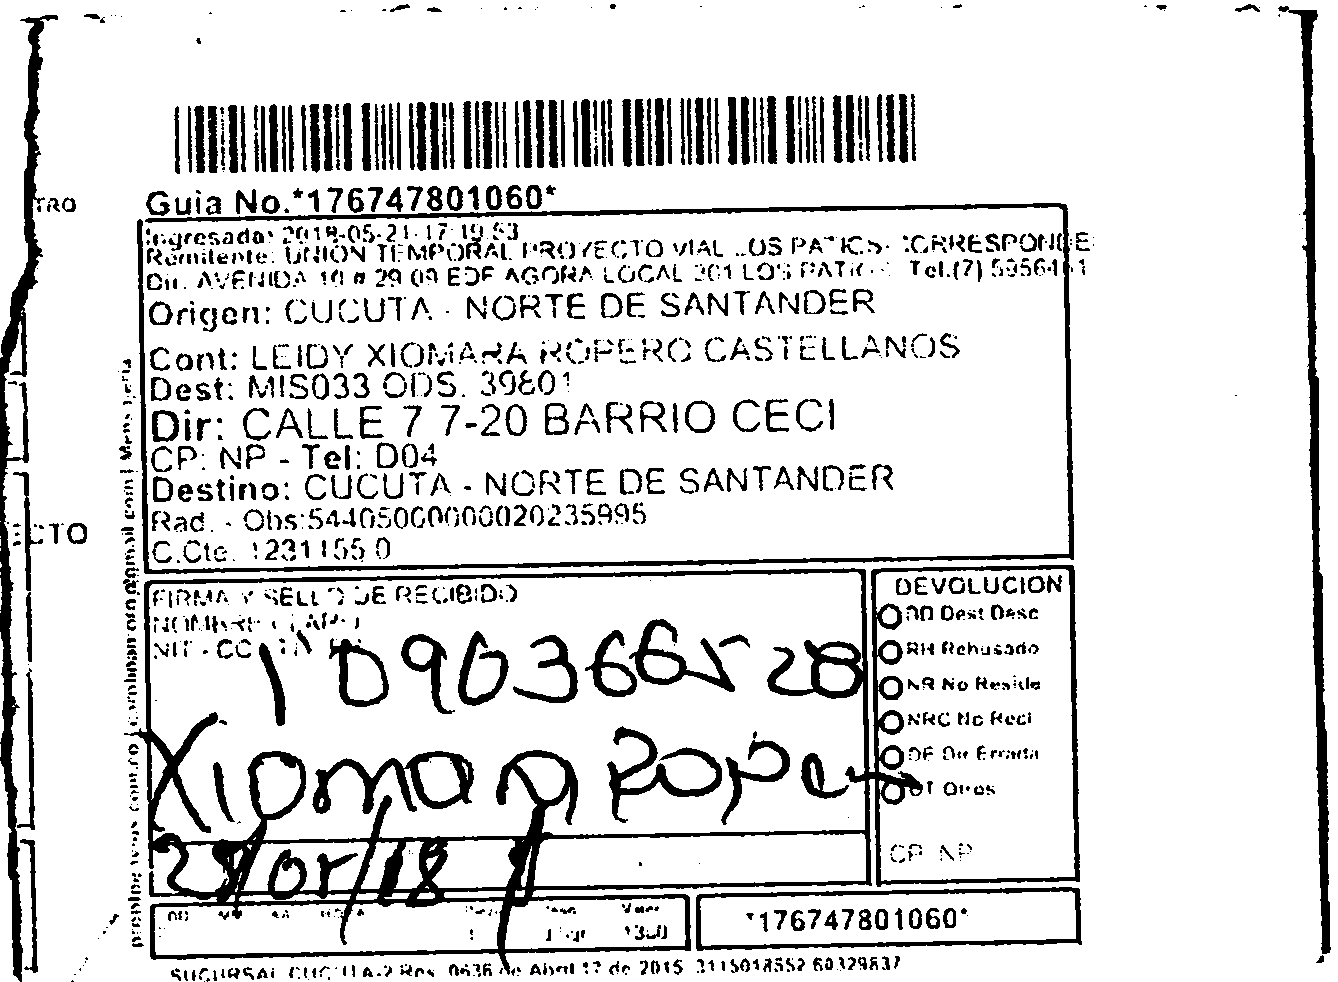 TRO
Guia No.*176747801060*
Ingresado: 2018-05-21-17:19:53
Remitente: UNION TEMPORAL PROYECTO VIAL LOS PATIOS- CORRESPONDE
Dir. AVENIDA 10 # 29 09 EDF AGORA LOCAL 201 LOS PATIOS Tel.(7) 5956461
Origen: CUCUTA - NORTE DE SANTANDER
Cont: LEIDY XIOMARA ROPERO CASTELLANOS
Dest: MIS033 ODS. 39801
Dir: CALLE 7 7-20 BARRIO CECI
CP: NP - Tel: D04
Destino: CUCUTA - NORTE DE SANTANDER
ECTO
Rad. - Obs:544050000000020235995
C.Cte. 1231155 0
FIRMA Y SELLO DE RECIBIDO
NOMBRE CLARO
NIT - CC
1090366528
Xiomara Ropero
28/05/18
DEVOLUCION
DD Dest Desc
RH Rehusado
NR No Reside
NRC No Recl
DE Dir Errada
OT Otros
CP NP
DD MM AA HORA
Peso Valor
1350
*176747801060*
SUCURSAL CUCUTA-2 Res. 0636 de Abril 17 de 2015 3115018552 60329837